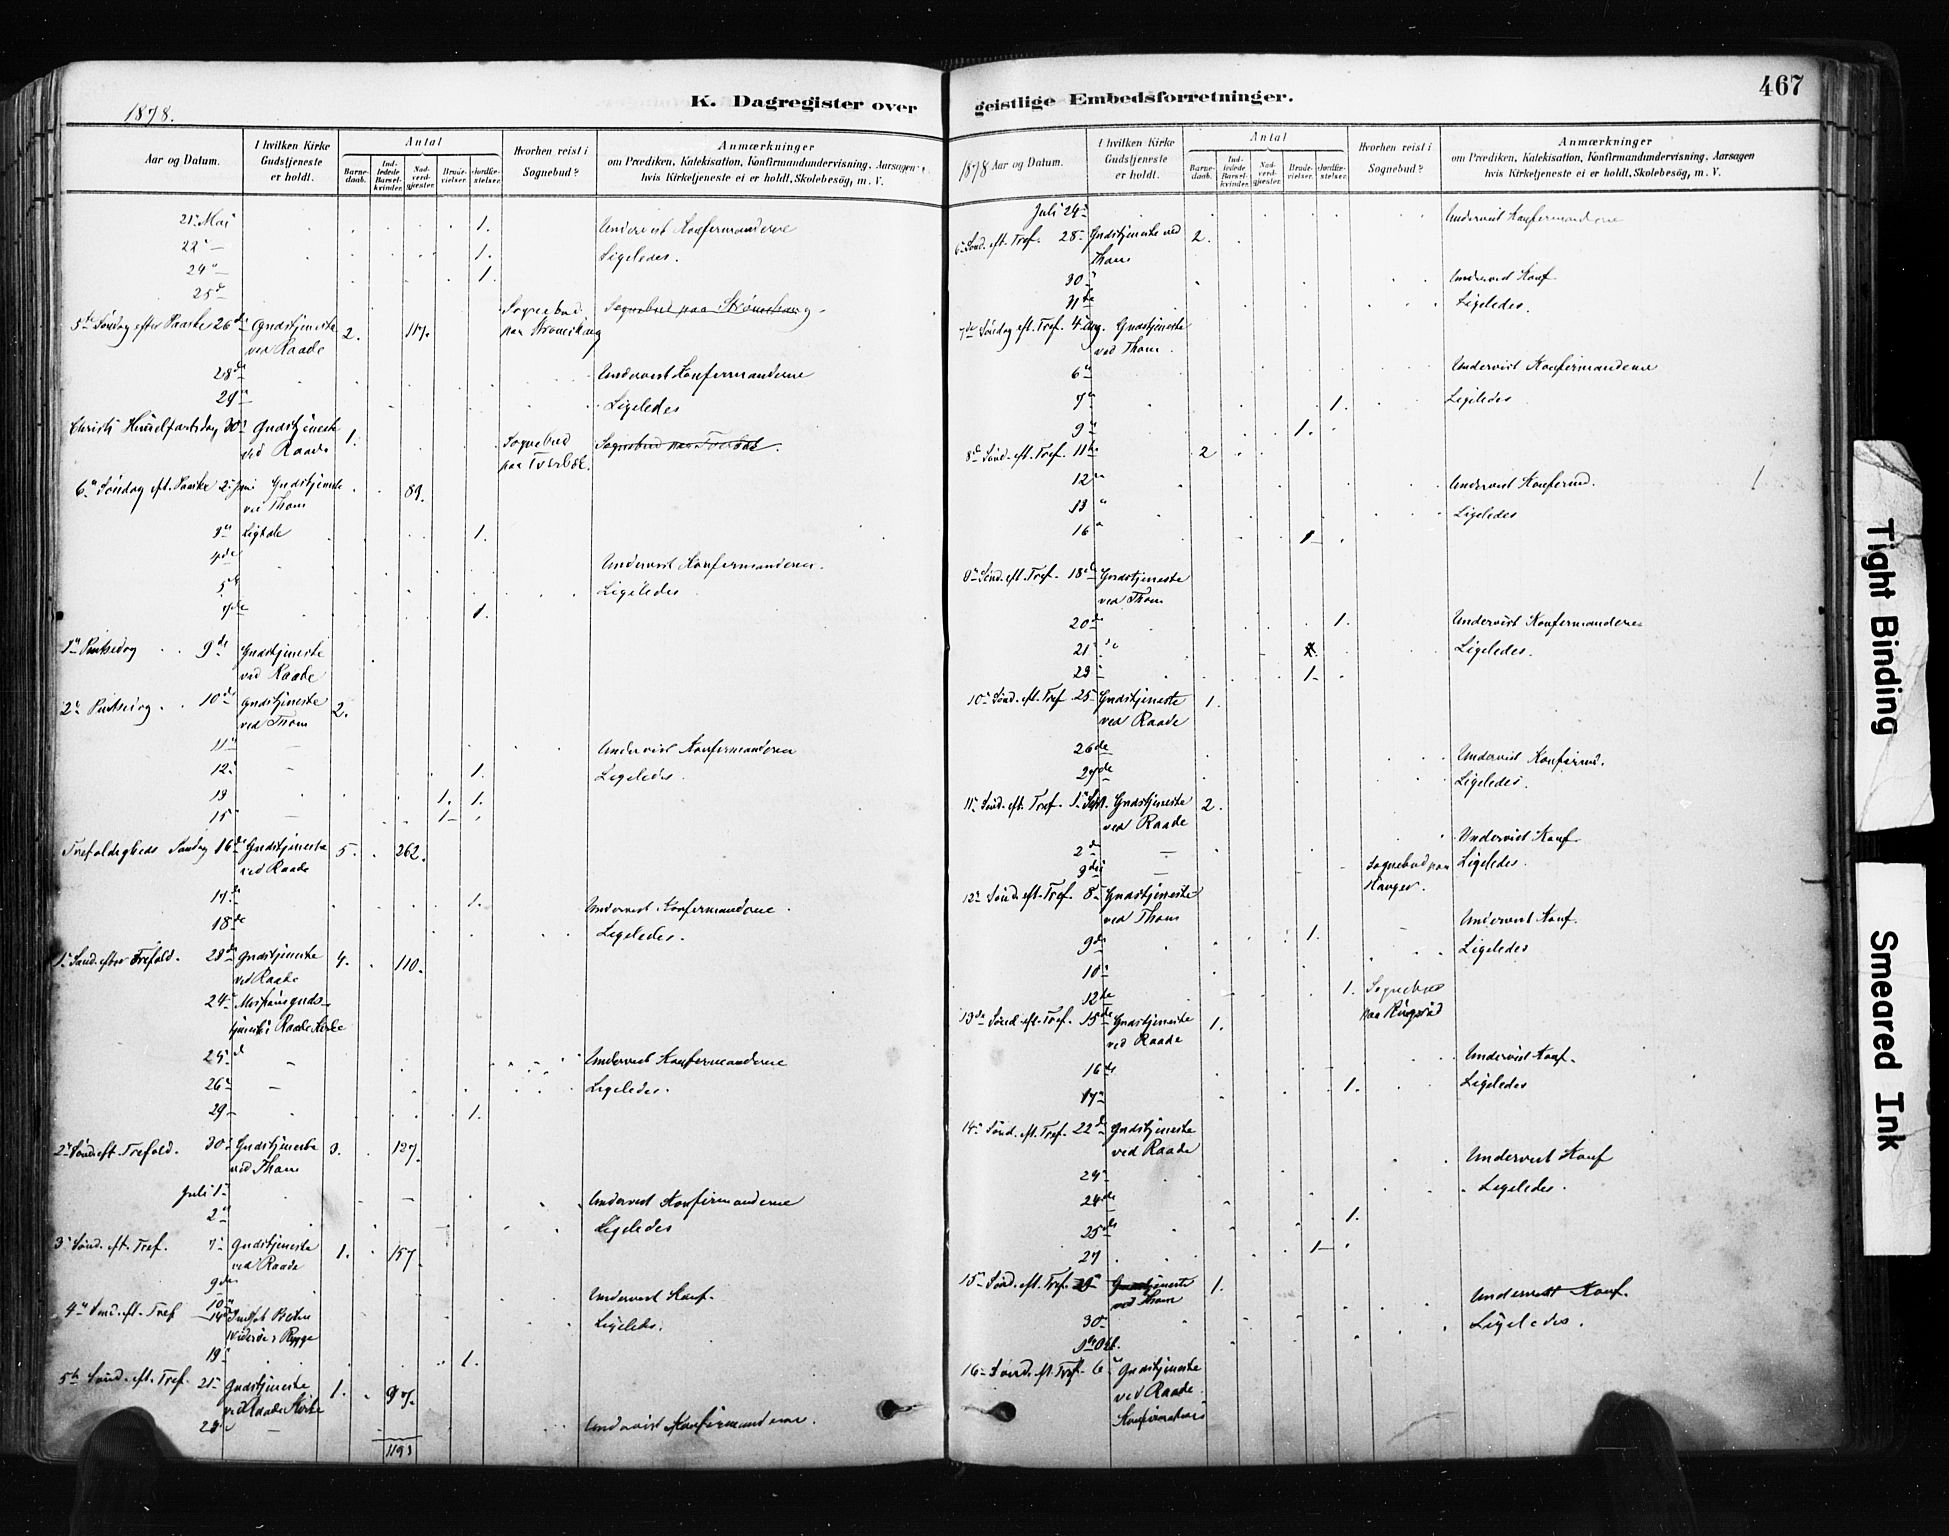 1878.
K. Dagregister over
Aar og Datum.
I hvilken Kirke Gudstjeneste er holdt.
Antal
Barne-daab.
Ind-ledede Barsel-kvinder.
Nad-verd-gjester.
Brude-vielser.
Jordfæ-stelser.
Hvorhen reist i Sognebud?
Anmærkninger
om Prædiken, Katekisation, Konfirmandundervisning, Aarsagen,
hvis Kirketjeneste ei er holdt, Skolebesøg, m. V.
21 Mai . 1. Undervist Konfermanderne
22 — 1. Ligeledes.
24 — 1.
25
5te Søndag efter Paaske 26de Gudstjeneste 2. 117. Sognebud Sognebud paa
ved Raade paa
28de Undervist Konfermanderne
29 Ligeledes
Christi Himmelfartsdag 30 Gudstjeneste 1. Sognebud Sognebud paa
ved Raade paa
6 Søndag eft. Paaske 2 Juni Gudstjeneste 89.
ved Thom
3 1.
4de Undervist Konfermanderne.
5 Ligeledes
7de 1.
1 Pintsedag 9de Gudstjeneste
ved Raade
2 Pintsedag 10de Gudstjeneste 2.
ved Thom
11 — Undervist Konfermanderne
12 — 1. Ligeledes.
13 1. 1.
15 — 1
Trefoldigheds Søndag 16de Gudstjeneste 5. 262.
ved Raade
17 1. Undervist Konfermanderne.
18de Ligeledes.
1 Sønd. efter Trefold. 23de Gudstjeneste 4. 110.
ved Raade
24
tjeneste i Raade Kirke
25 Undervist Konfermanderne
26 — Ligeledes.
29 1.
2 Sønd. eft. Trefold. 30 Gudstjeneste 3. 127.
ved Thom
Juli 1 Undervist Konfirmanderne
2 Ligeledes
3 Sønd. eft. Tref. 7 Gudstjeneste 1. 157.
ved Raade
9de Undervist Konf.
10 Ligeledes.
4 Sønd. eft. Tref 14
Rygge
19 1.
5te Sønd. eft. Tref. 21 Gudstjeneste 1. 97.
ved Raade Kirke
23 — Undervist Konfirmanderne.
1193
467
geistlige Embedsforretninger.
1878 Aar og Datum.
I hvilken Kirke Gudstjeneste er holdt.
Antal
Barne-daab.
Ind-ledede Barsel-kvinder.
Nad-verd-gjester.
Brude-vielser.
Jordfæ-stelser.
Hvorhen reist i Sognebud?
Anmærkninger
om Prædiken, Katekisation, Konfirmandundervisning, Aarsagen
hvis Kirketjeneste ei er holdt, Skolebesøg, m. V.
Juli 24 Undervist Konfermanderne
6 Sønd. eft. Tref. 28 Gudstjeneste ved 2.
Thom
30 Undervist Konf.
31te Ligeledes.
7de Søndag eft. Tref. 4 Aug. Gudstjeneste
ved Thom.
6 Undervist Konfirmanderne
7 1. Ligeledes
9 1.
8de Sønd. eft. Tref. 11 2
12 Undervist Konfermd.
13 Ligeledes
16 1
9 Sønd. eft. Tref. 18de Gudstjeneste
ved Thom
20de 1. Undervist Konfermanderne
21 Ligeledes.
23 1.
10 Sønd. eft. Tref 25 Gudstjeneste 1.
ved Raade
26de Undervist Konfirmd.
27de Ligeledes.
11 Sønd. eft. Tref. 1 Sept. Gudstjeneste 2.
ved Raade
2de — Undervist Konf.
3die — Sognebud paa Ligeledes.
Hauger.
12 Sønd. eft. Tref. 8 Gudstjeneste
ved Thom Undervist Konf.
9de 1. Ligeledes
10
12te 1. Sognebud
paa
13de Sønd. eft. Tref. 15de Gudstjeneste 1.
ved Raade
16de Undervist Konf.
17 1. Ligeledes
14 Sønd. eft. Tref. 22de Gudstjeneste
ved Raade Undervist Konf
24 Ligeledes.
24de 1.
25de
27 1
15 Sønd. eft. Tref. 29 Gudstjeneste 1. Undervist Konf.
ved Thom
30 Ligeledes.
1 Okt.
16 Sønd. eft. Tref. 6 Gudstjeneste
ved Raade.
Konfirmation
Tight Binding
Smeared Ink